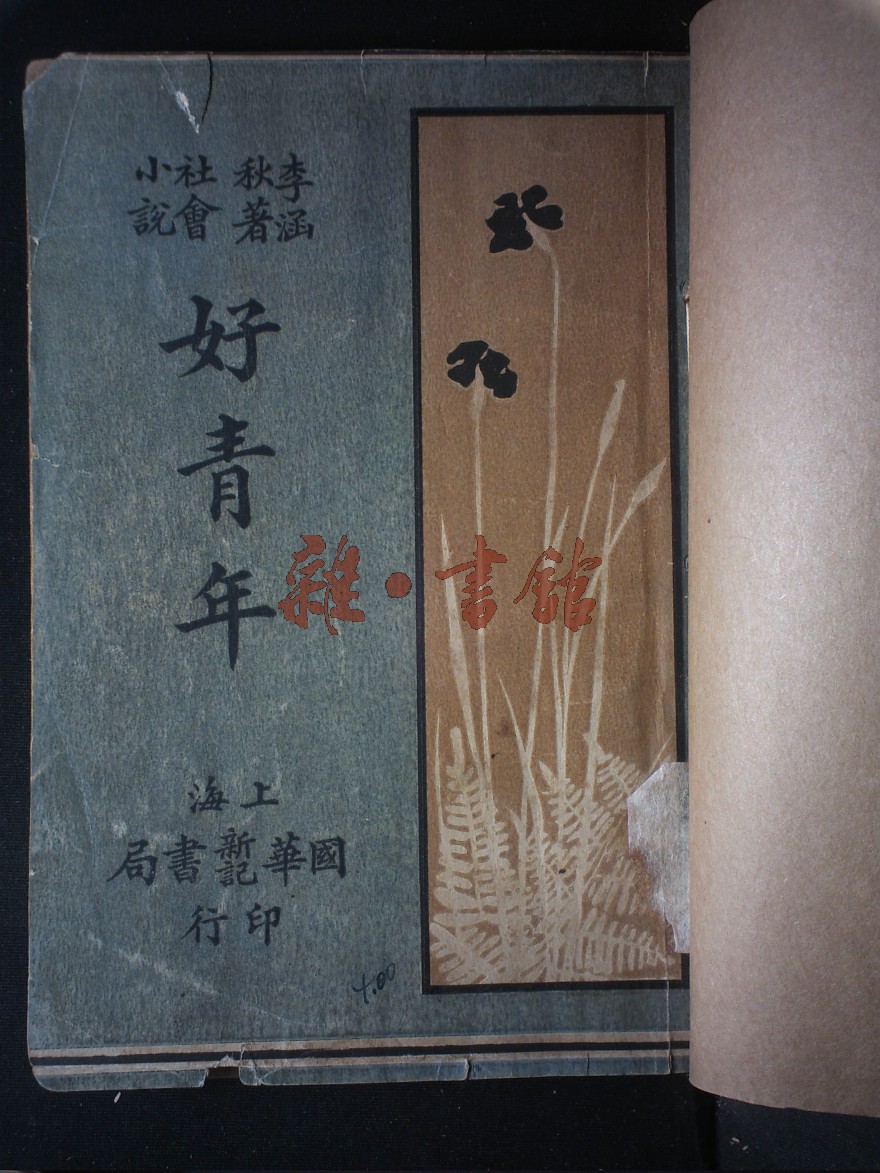 李涵秋著
社會小説
好青年
雜·書館
上海
國華新記書局
印行
4.00